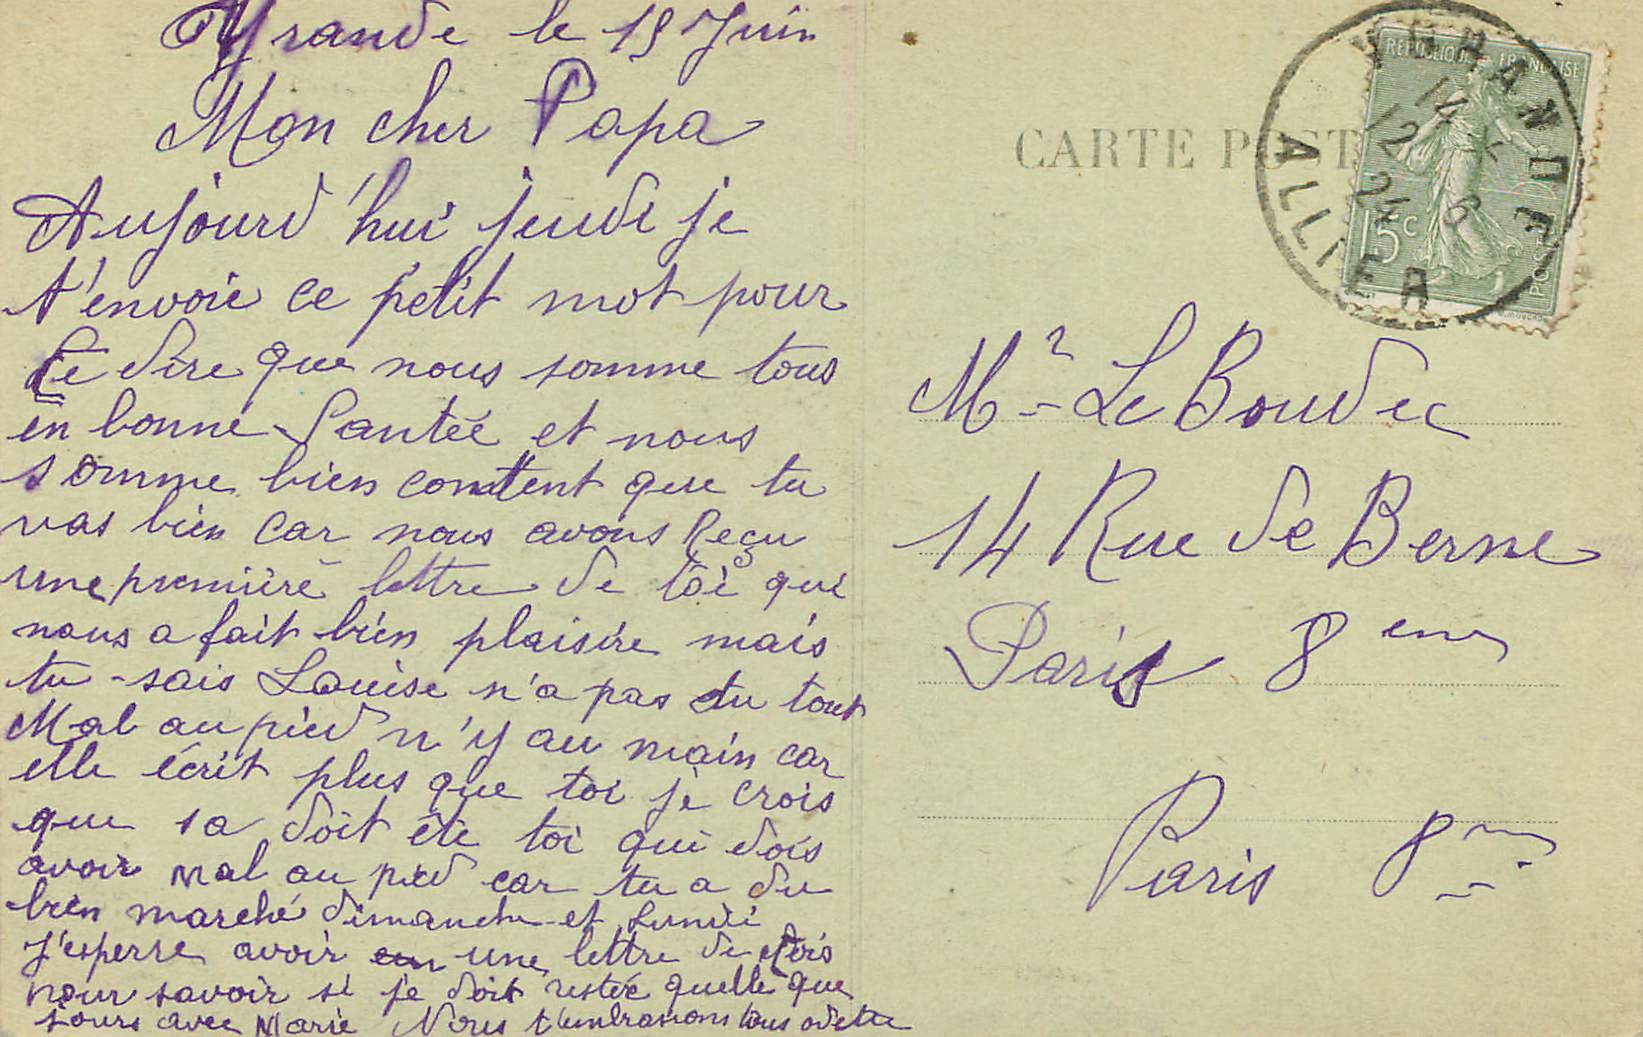 Ygrande le 19 Juin
Mon cher Papa
Aujourd'hui jeudi je
t'envoie ce petit mot pour
te dire que nous somme tous
en bonne Santée et nous
somme bien content que tu
vas bien car nous avons Reçu
une première lettre de toi qui
nous a fait bien plaisire mais
tu sais Louise n'a pas du tout
Mal au pied n'y au main car
elle écrit plus que toi je crois
que sa doit ête toi qui dois
avoir mal au pied car tu a du
bien marché dimanche et Lundi
J'esperre avoir une lettre de
pour savoir si je doit restée quelle que
jours avec Marie Nous t'embrasons tous odette
CARTE POSTALE
REPUBLIQUE FRANÇAISE
15c
POSTES
YGRANDE
14
12 6
24
ALLIER
Mr Le Boudec
14 Rue de Berne
Paris 8 em
Paris 8 me